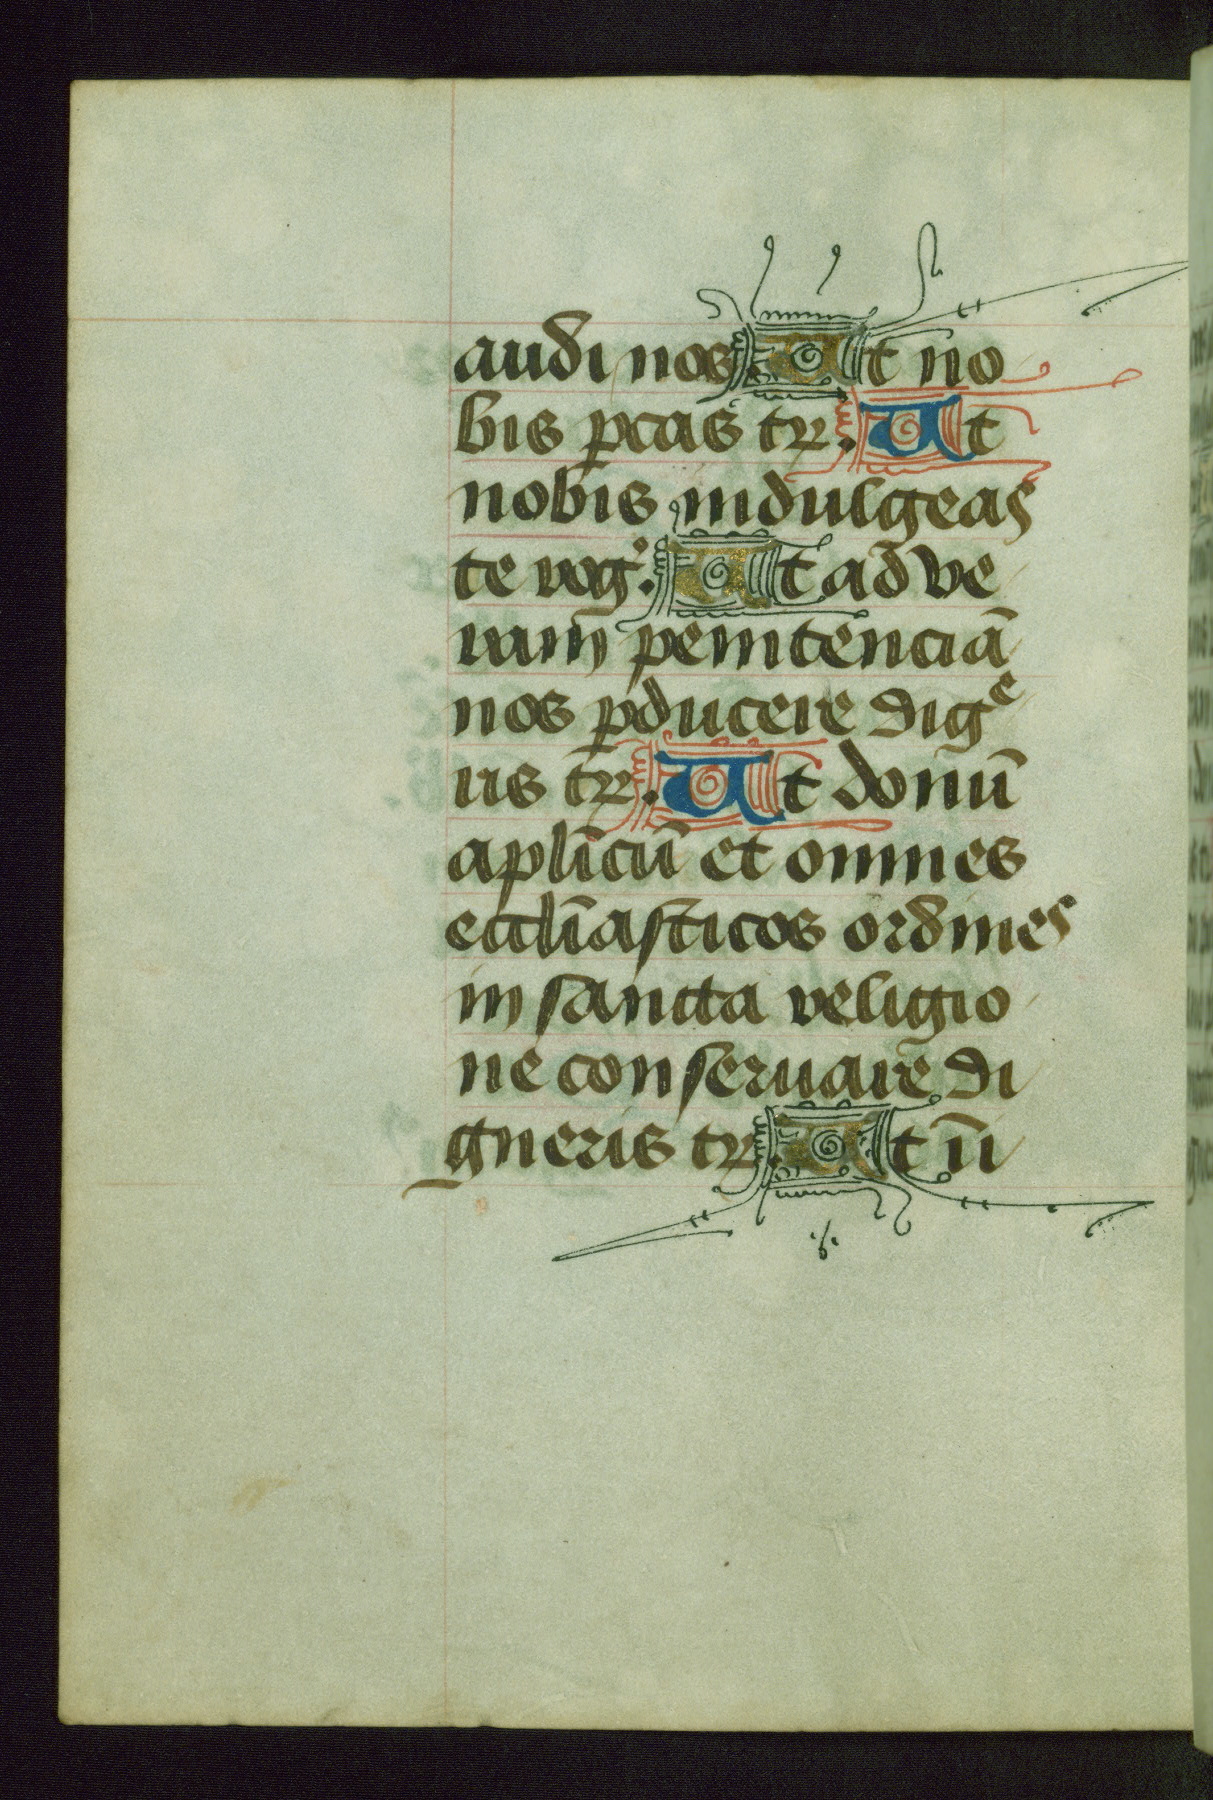 audi nos. Ut no
bis ꝑcas tꝛ. Ut
nobis indulgeas
te rog̾. Ut ad ve
ram penitenciā
nos ꝑducere digͤ
ris tꝛ̄. Ut donū
aplīcū et omnes
ecclīasticos ordines
in sancta religio
ne conseruare di
gneris tꝛ. Ut īi